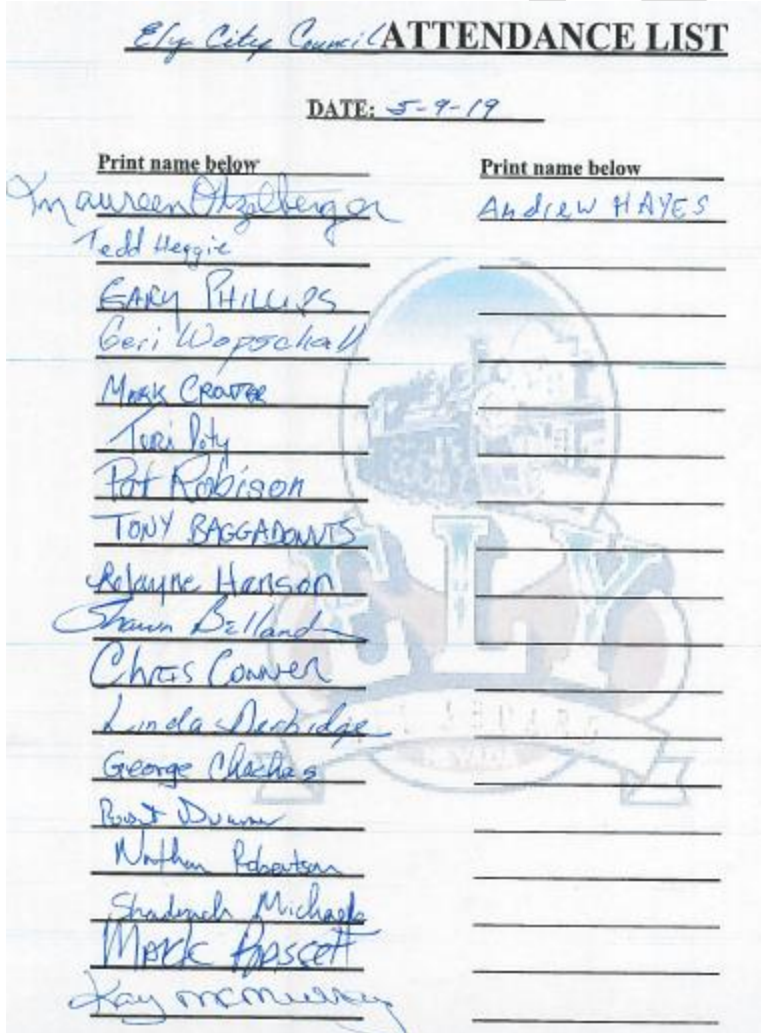 Ely City Council ATTENDANCE LIST
DATE: 5-9-19
Print name below
Maureen Otzelberger
Tedd Heggie
GARY PHILLIPS
Geri Wopschall
MARK CROTER
Teri Doty
Pat Robison
TONY BAGGADONUTS
Relayne Hanson
Shawn Belland
CHRIS CONNER
Linda
George Chachas
Robert
Nathan Robertson
Shadrach Michaels
MARK BASSETT
Kay McMurray
Print name below
Andrew HAYES
ELY
NEVADA